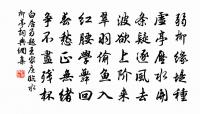 弱柳緣堤種
虛亭壓水開
條疑逐風去
波欲上階來
翠羽偷魚入
紅腰學舞回
春愁正無緒
爭不盡殘杯
白居易題王家庄臨水
柳亭詞典網集